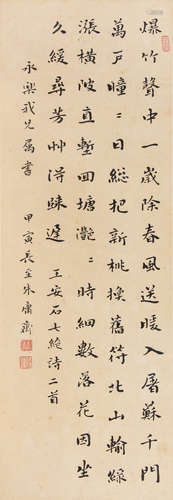 爆竹聲中一歲除春風送暖入屠蘇千門
萬戶曈〻日總把新桃換舊符北山輸綠
漲橫陂直塹回塘灩〻時細數落花因坐
久緩尋芳艸得歸遲 王安石七絕詩二首
永樂我兄屬書 甲寅長至朱庸齋